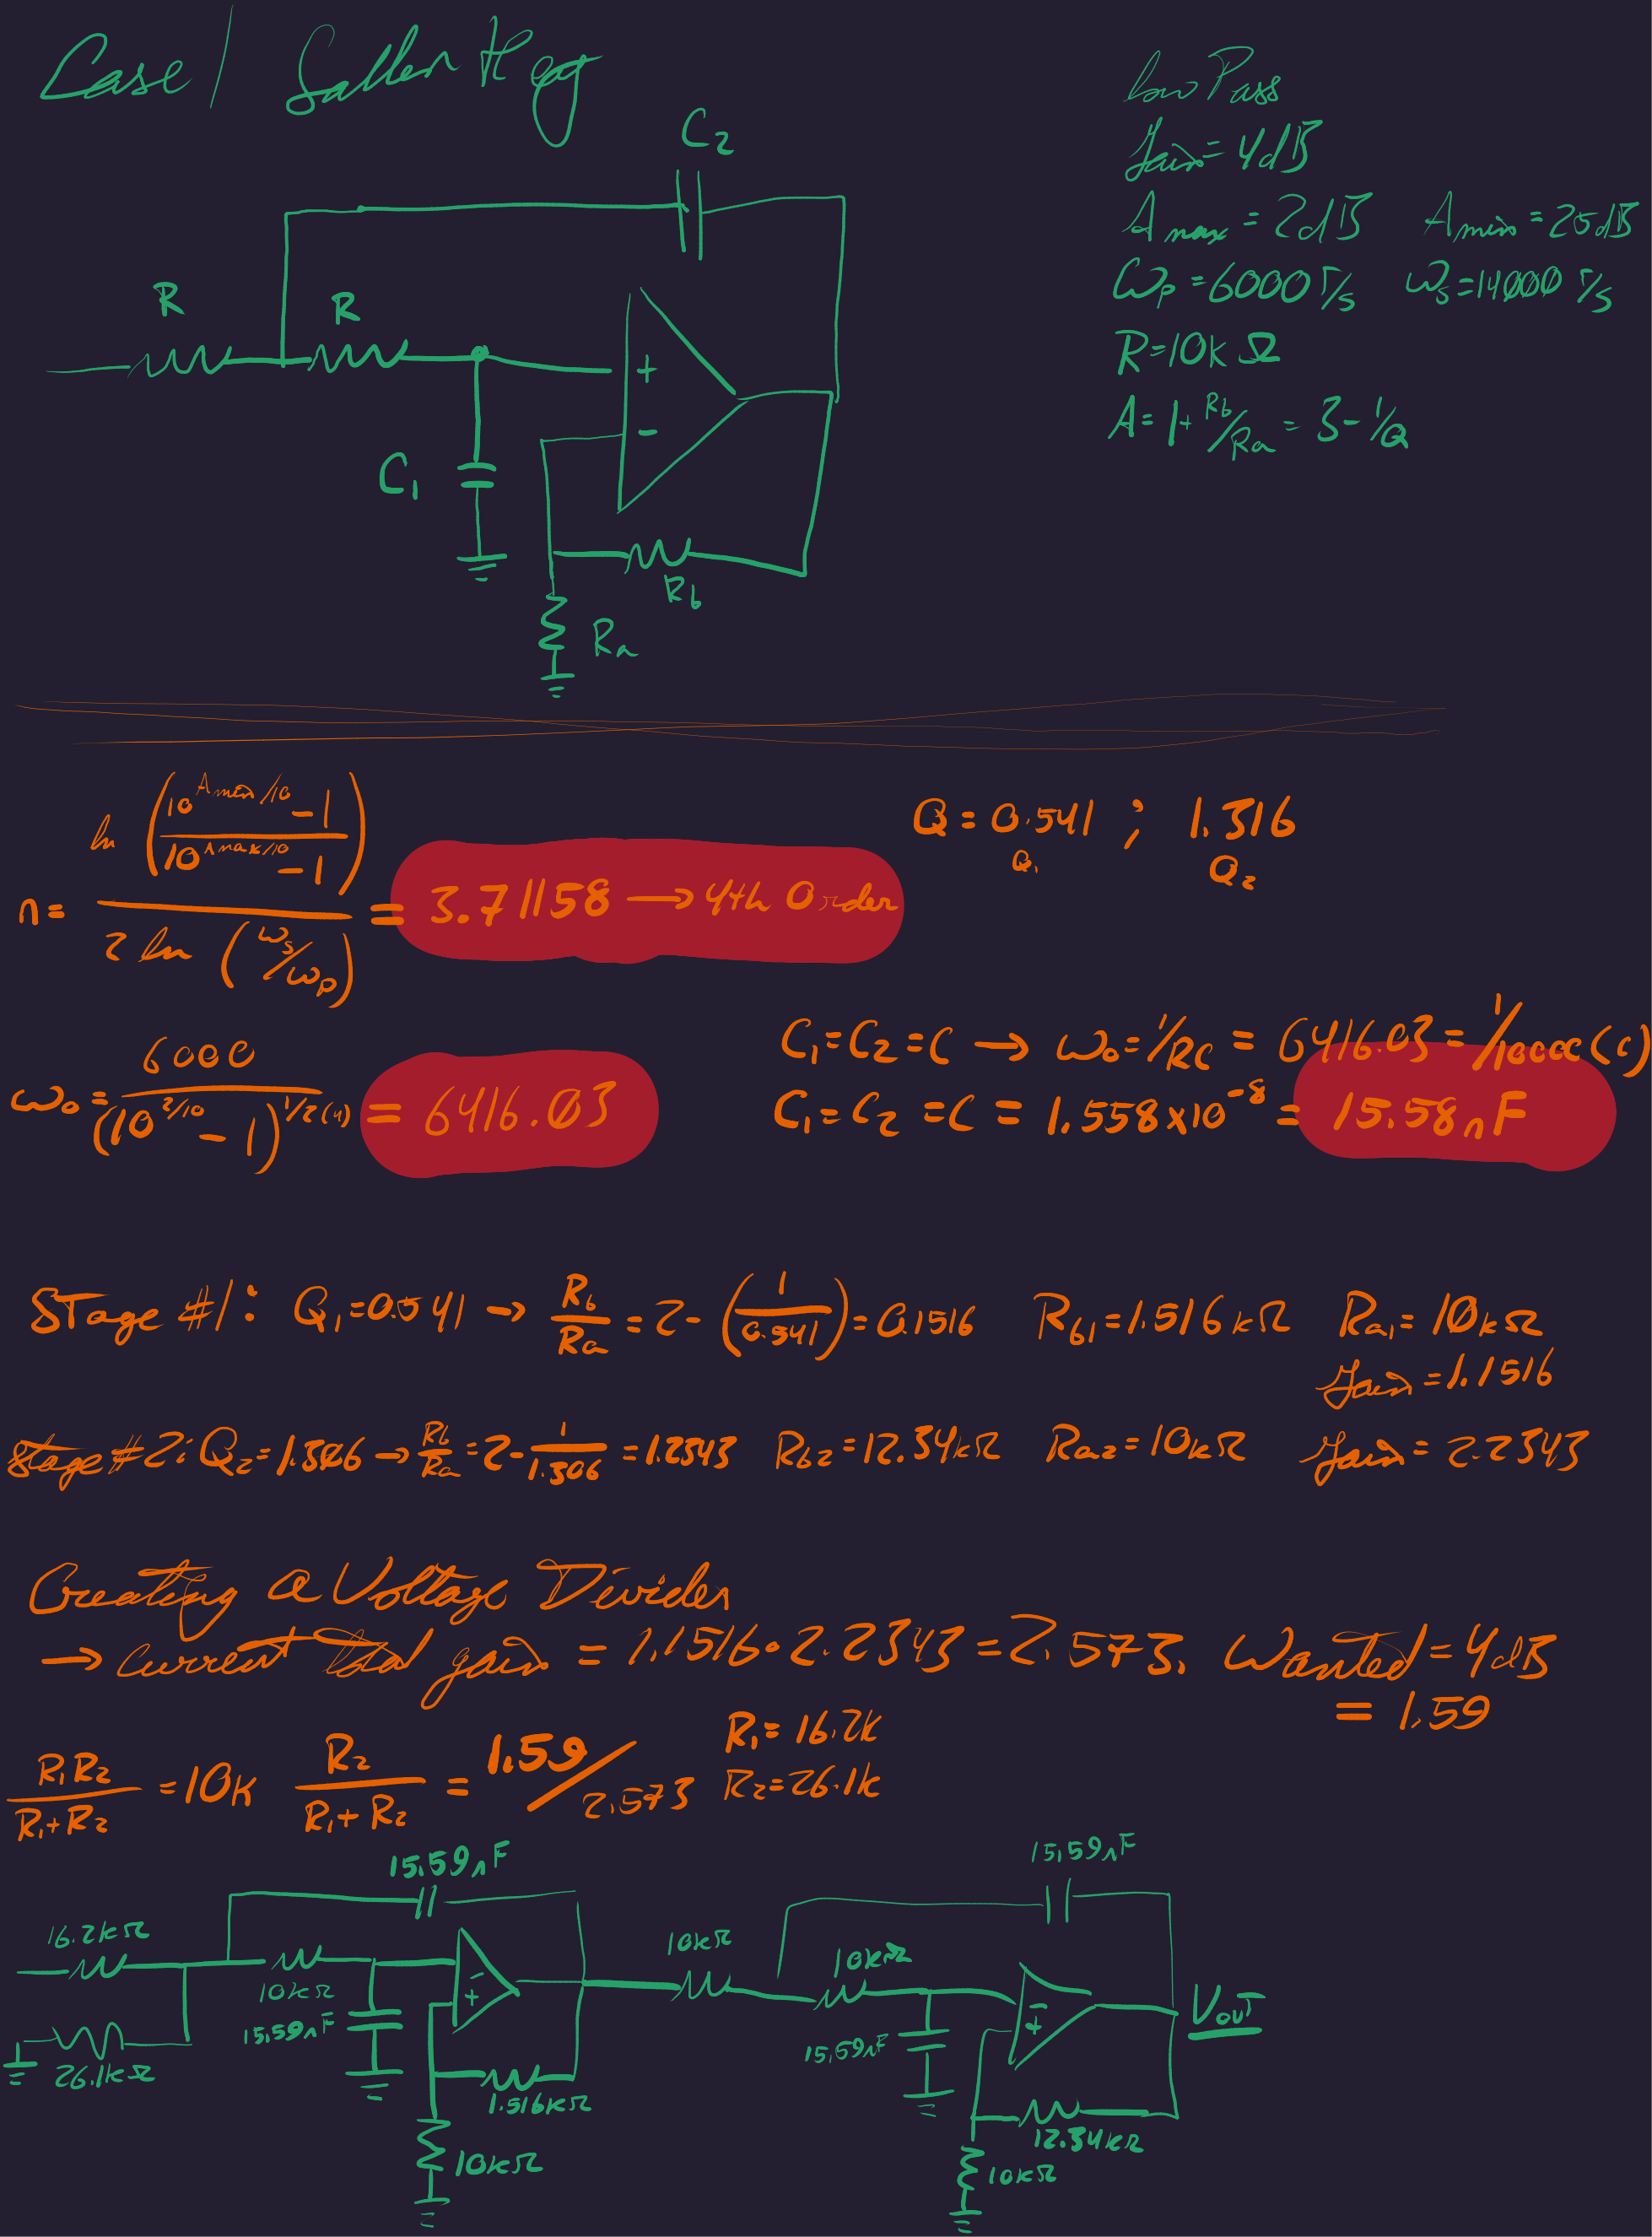 Case 1 Sallen Key
Low Pass
Gain = 4dB
C2
Amax = 2dB Amin = 25dB
ωp = 6000 r/s ωs = 14000 r/s
R R
R = 10kΩ
A = 1 + Rb/Ra = 3 - 1/Q
+
-
C1
Rb
Ra
n = ln((10^(Amin/10) - 1)/(10^(Amax/10) - 1)) / (2 ln(ωs/ωp)) = 3.71158 → 4th Order
Q = 0.541 ; 1.316
Q1 Q2
ω0 = 6000/(10^(2/10) - 1)^(1/2(4)) = 6416.03
C1 = C2 = C → ω0 = 1/RC = 6416.03 = 1/10000(C)
C1 = C2 = C = 1.558x10^-8 = 15.58nF
Stage #1: Q1 = 0.541 → Rb/Ra = 2 - (1/0.541) = 0.1516 Rb1 = 1.516kΩ Ra1 = 10kΩ
Gain = 1.1516
Stage #2: Q2 = 1.306 → Rb/Ra = 2 - 1/1.306 = 1.2343 Rb2 = 12.34kΩ Ra2 = 10kΩ Gain = 2.2343
Creating a Voltage Divider
→ current total gain = 1.1516 · 2.2343 = 2.573. Wanted = 4dB
= 1.59
R1R2/(R1+R2) = 10k R2/(R1+R2) = 1.59/2.573 R1 = 16.2k
R2 = 26.1k
15.59nF 15.59nF
16.2kΩ 10kΩ 10kΩ
10kΩ
- +
- +
15.59nF 15.59nF Vout
26.1kΩ
1.516kΩ 12.34kΩ
10kΩ 10kΩ